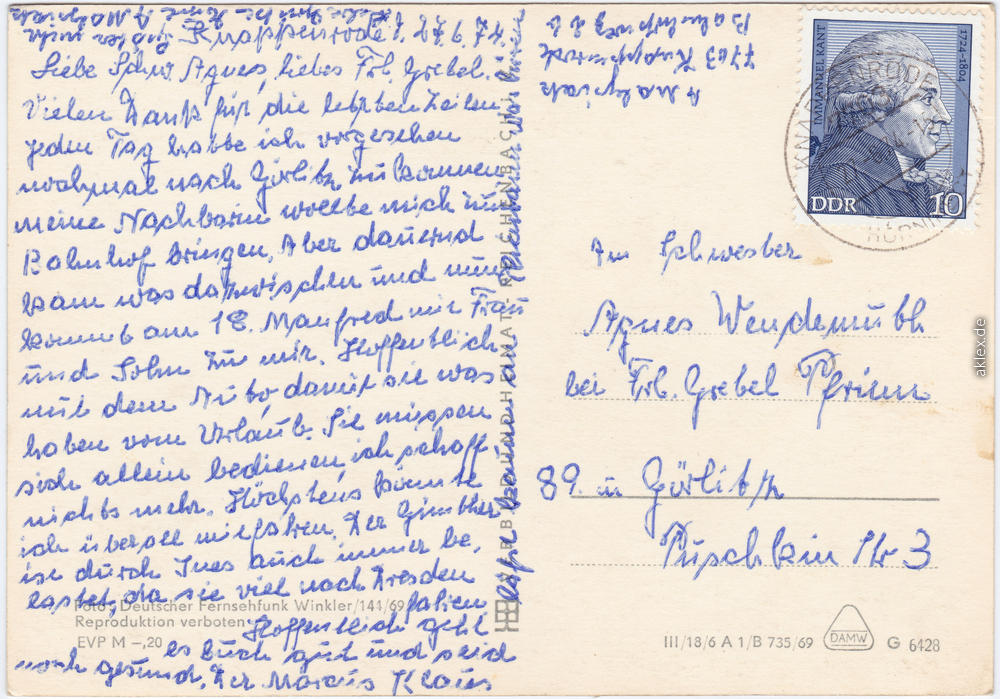 Knappenrode, 27.9.74.
Liebe Schw. Agnes, liebes Frl. Grebel.
Vielen Dank für die letzten Zeilen
jeden Tag hatte ich vorgesehen
nochmal nach Görlitz zu kommen
meine Nachbarin wollte mich zum
Bahnhof bringen, Aber dauernd
kam was dazwischen und nun
kommt am 18. Manfred mit Frau
und Sohn zu mir. Hoffentlich
mit dem Auto damit sie was
haben vom Urlaub. Sie müssen
sich allein bedienen, ich schaff
nichts mehr. Höchstens könnte
ich überall mitfahren. Der Günther
ist durch Ines auch immer be,
lastet, da sie viel nach Dresden
fahren
Hoffentlich geht
es Euch gut und seid
noch gesund. Der Marcus Klaus
7703 Knappenrode
Bahnhofsweg
IMMANUEL KANT
1724-1804
DDR 10
An Schwester
Agnes Wendemuth
bei Frl. Grebel
89. in Görlitz
Puschkin Str 3
Foto: Deutscher Fernsehfunk Winkler/144/69
Reproduktion verboten
EVP M –,20
BILD UND HEIMAT REICHENBACH
III/18/6 A 1/B 735/69
DAMW
G 6428
aklex.de